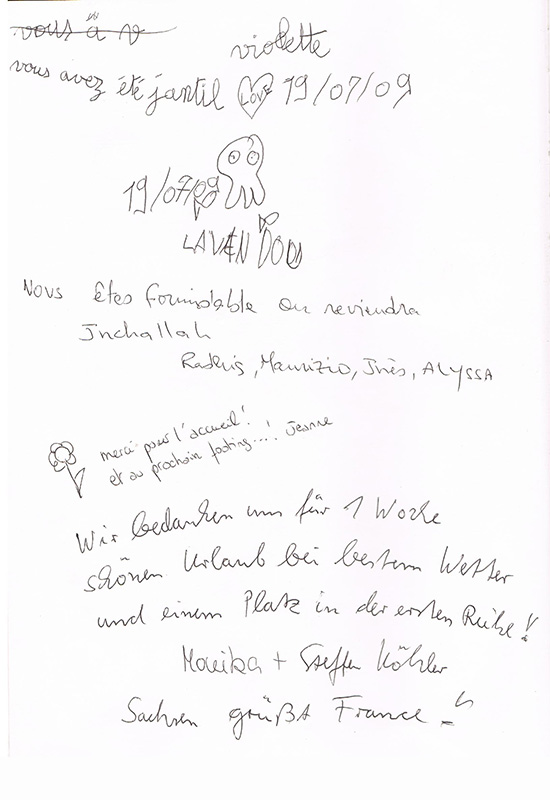 vous à v
violette
vous avez été jantil LOVE 19/07/09
19/07/09
LAVENDOU
Nous êtes formidable on reviendra
Inchallah
Maurizio, Inès, ALYSSA
merci pour l'accueil!
et au prochain footing...! Jeanne
Wir bedanken uns für 1 Woche
schönen Urlaub bei bestem Wetter
und einem Platz in der ersten Reihe!
Monika + Steffen Köhler
Sachsen grüßt France!